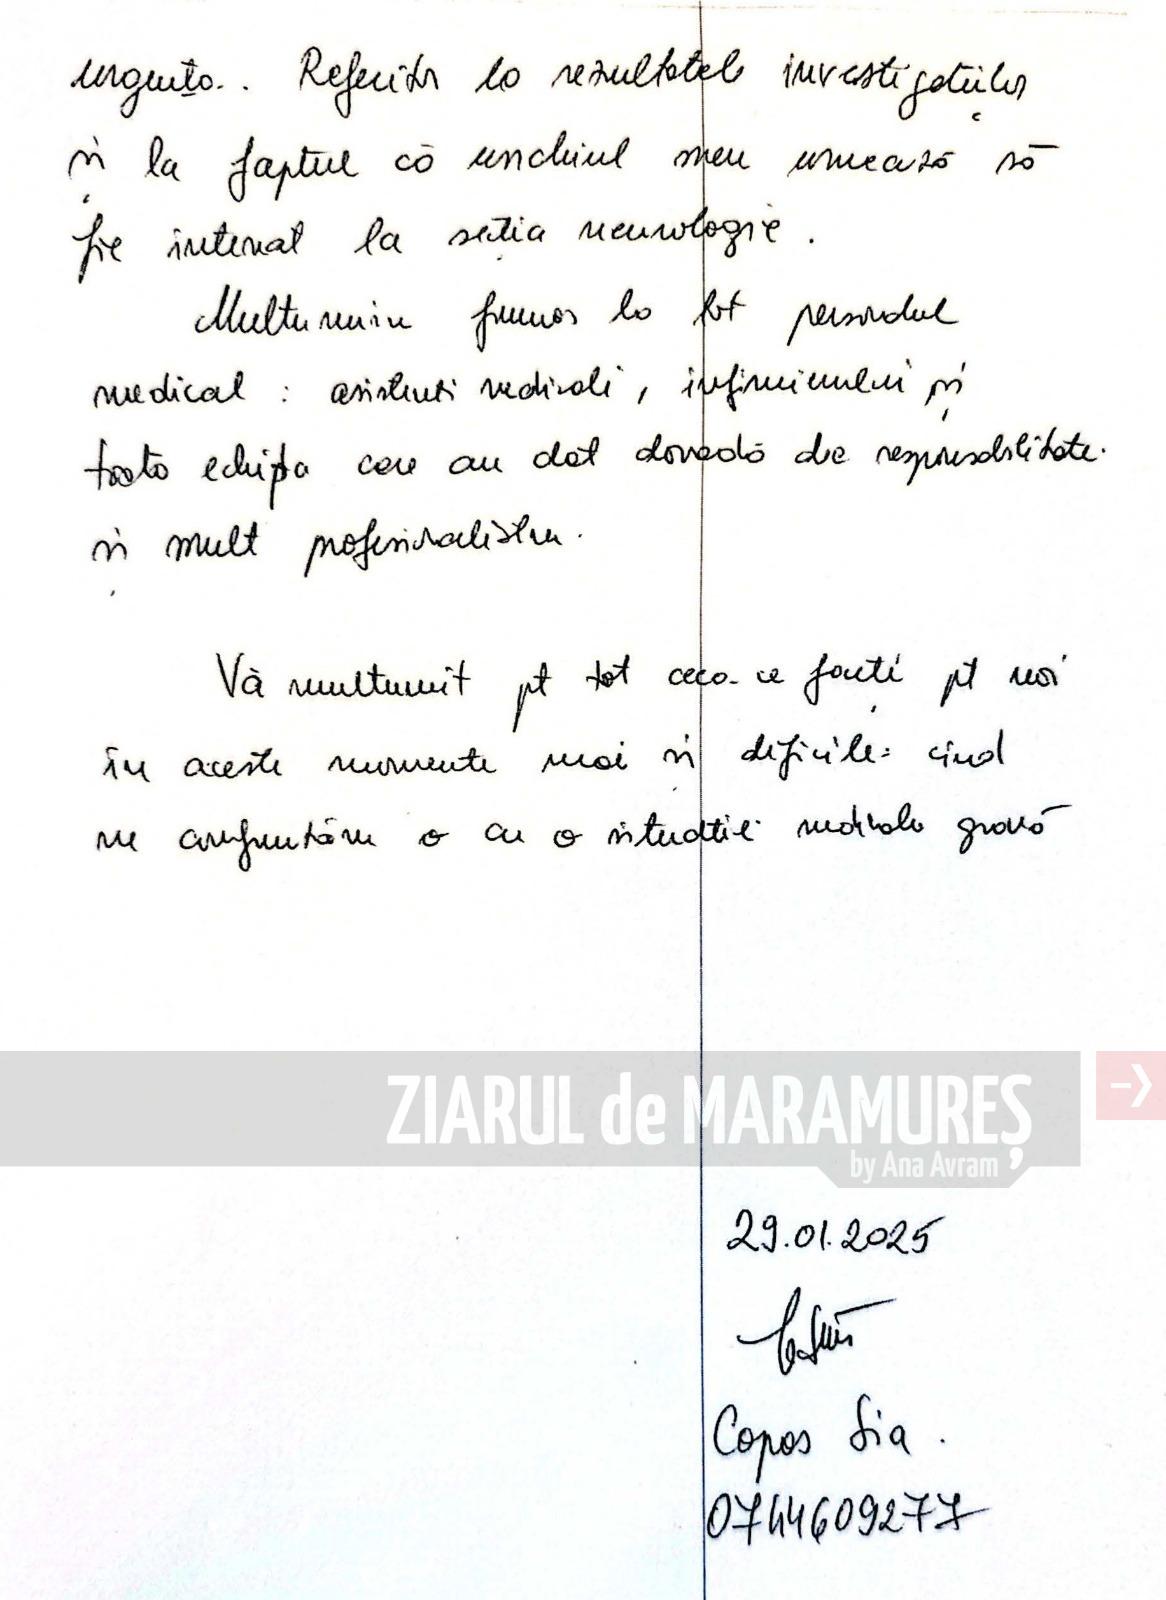 urgența.. Referitor la rezultatele investigațiilor
și la faptul că unchiul meu urmează să
fie internat la secția neurologie.
Multumim frumos la tot personalul
medical : asistenti medicali, infirmierului și
toata echipa care au dat dovadă de responsabilitate.
și mult profesionalism.
Vă multumit pt tot ceea-ce faceți pt noi
în aceste momente mai și dificile: cînd
ne confruntăm o cu o situatie medicala gravă
ZIARUL de MARAMUREȘ
by Ana Avram
29.01.2025
Copos Lia.
0744609277